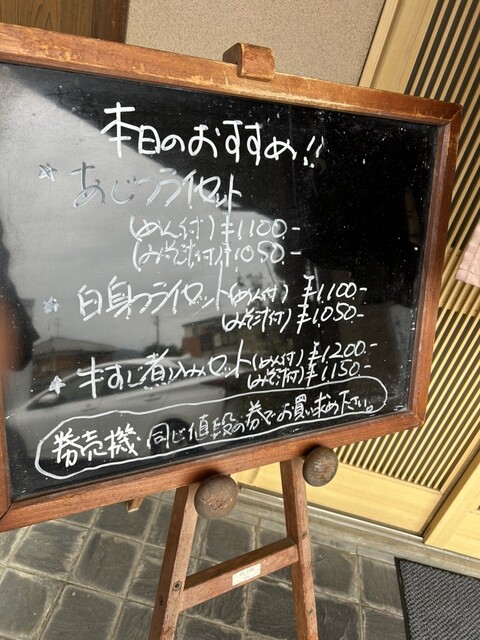 本日のおすすめ!!
*あじフライセット
(めん付)¥1,100.-
(みそ汁付)¥1,050.-
*白身フライセット(めん付) ¥1,100.-
(みそ汁付) ¥1,050.-
*牛すじ煮込みセット(めん付) ¥1,200.-
(みそ汁付) ¥1,150.-
券売機 同じ値段の券でお買い求め下さい。